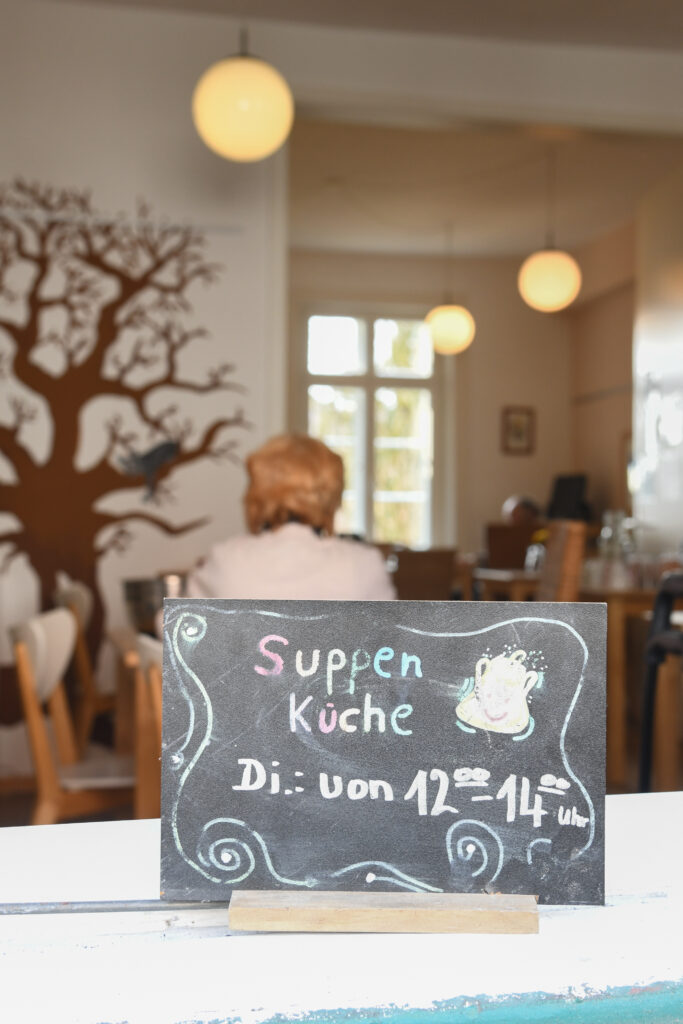 Suppen
Küche
Di.: von 12⁰⁰-14⁰⁰ Uhr